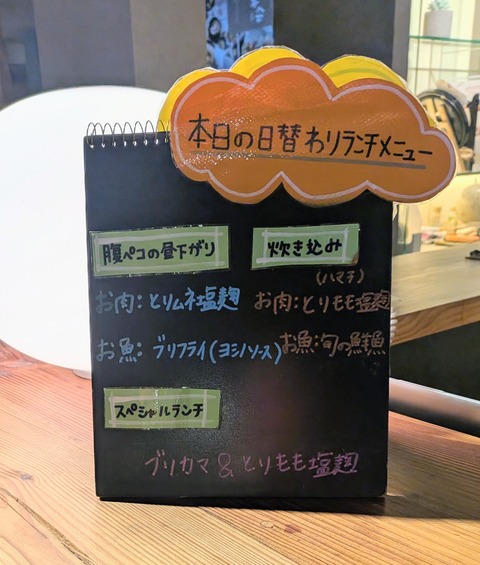 本日の日替わりランチメニュー
腹ペコの昼下がり
お肉：とりムネ塩麹
お魚：ブリフライ(ヨシノソース)
炊き込み
(ハマチ)
お肉：とりもも塩麹
お魚：旬の鮮魚
スペシャルランチ
ブリカマ&とりもも塩麹